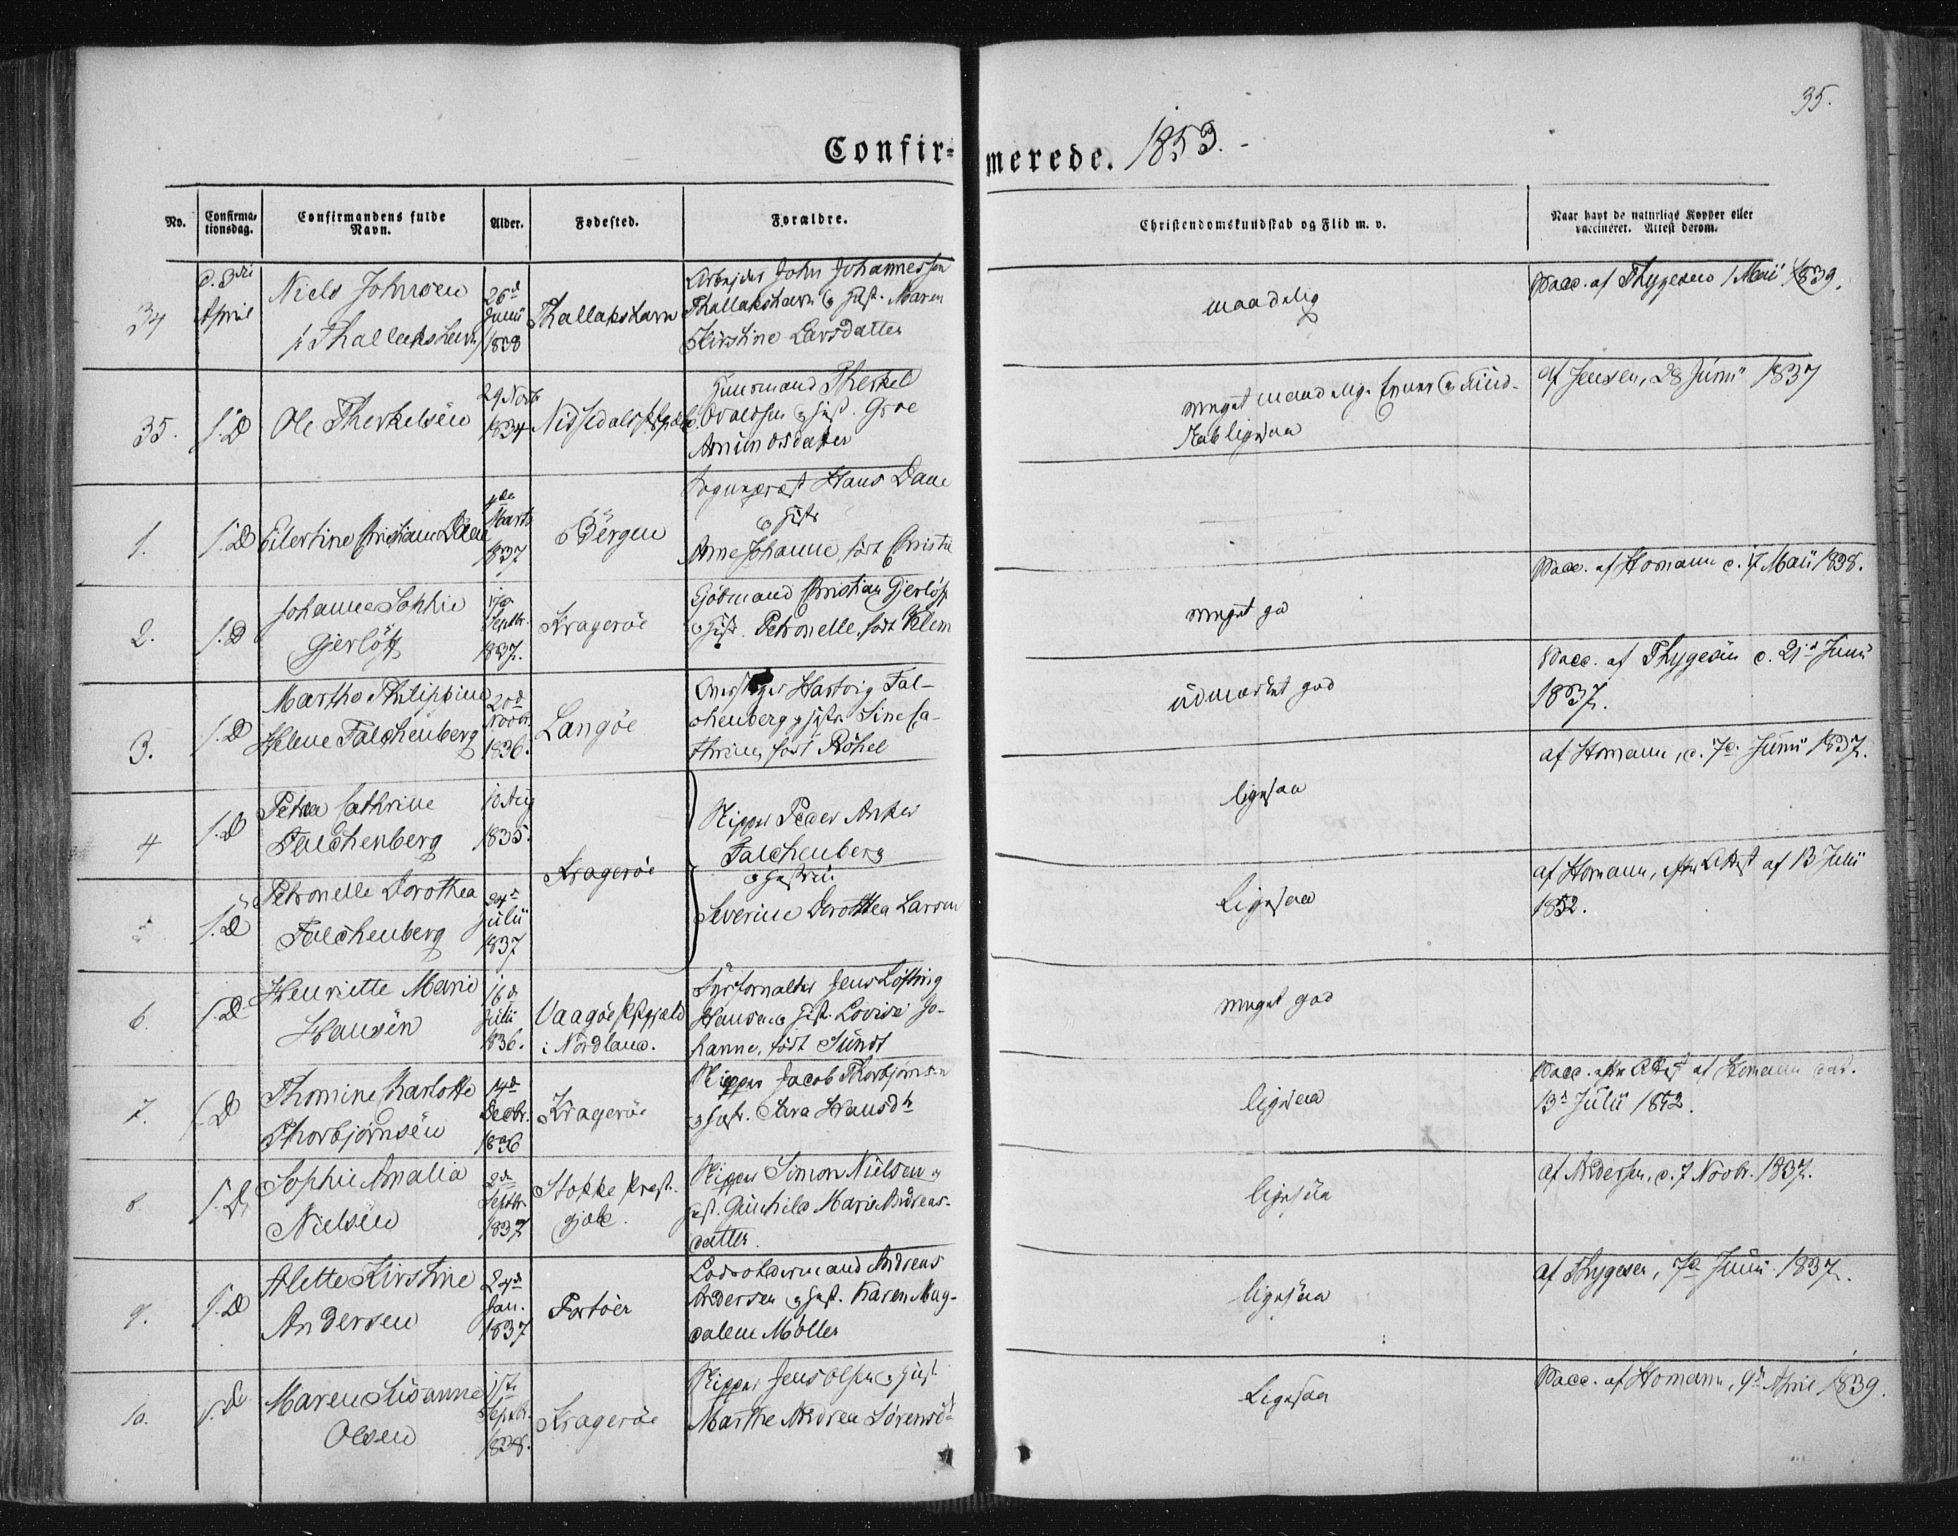 35.
Confirmerede. 1853.
No.
Confirmationsdag.
Confirmandens fulde Navn.
Alder.
Fødested.
Forældre.
Christendomskundskab og Flid m. v.
Naar havt de naturlige Kopper eller vaccineret. Attest derom.
34
d. 3die April
Niels Johnsen
Thallakshavn
26d Junii 1838
Thallakshavn
Arbejder John Johannessen
Thallakshavn & Hust. Maren
Kirstine Larsdatter
maadelig
Vacc. af Thygesen 1 Maii 1839.
35.
S.D
Ole Therkelsen
29 Novb 1834
Nissedals Pgjæld
Huusmand Therkel
& Hust. Groe
Amundsdatter
meget maadelig. Evner & Kund-
skab ligesaa
af Jensen, 28 Junii 1837
1.
S.D
Eilertine Christiane Daae
Marts 1837
Bergen
Sognepræst Hans Daae
& Hustr
Anne Johanne, født Christie
2.
S.D
Johanne Sophie
Gjerløff
Septbr. 1837.
Kragerøe
Christian Gjerløff
& Hust. Petronelle, født Klem
meget god
Vacc. af Homann d. 17 Maii 1838.
3.
S.D
Marthe Philippine
Helene Falchenberg
20d Novbr. 1836.
Langøe
Hartvig Fal-
chenberg & Hustr. Sine Ca-
thrine, født Røhel
udmærket god
Vacc. af Thygesen d. 21d Junii
1837.
4
S.D
Petra Cathrine
Falchenberg
10 Aug 1835.
Kragerøe
Skipper Peder Anker
Falchenberg
& Hustrue
Severine Dorothea Larsen
ligesaa
af Homann, d. 7d. Junii 1837.
S.D
Petronelle Dorothea
Falchenberg
24d Julii 1837
Ligesaa
af Homann, efter Attest af 13 Julii
1852.
6.
S.D
Henriette Marie
Hansen
16d Julii 1836.
Vaagøe Pstgjæld
i Nordland.
Fyrforvalter Jens Løfting
Hansen & Hust. Lovise Jo-
hanne, født Sundt
meget god
7.
S.D
Thomine Charlotte
Thorbjørnsen
14d Decbr. 1836
Kragerøe
Skipper Jacob Thorbjørnsen
& Hust. Sara Hansdtr
ligesaa
Vacc. efter Attest af Homann dat.
13d Julii 1852.
8.
S.D.
Sophie Amalia
Nielsen
2den Septbr. 1837
Stokke Præst-
gjæld.
Skipper Simon Nielsen &
Hust. Gunhild Marie Andreas-
datter.
ligesaa
af Andersen, d. 7 Novbr. 1837.
9.
S.D
Alette Kirstine
Andersen
24d Jan. 1837
Portøer
Lodsoldermand Andreas
Andersen & Hust. Karen Mag-
dalene Møller
ligesaa
af Thygesen, 7d Junii 1837.
10.
S.D
Maren Susanne
Olsen
Septbr. 1838.
Kragerøe
Skipper Jens Olsen & Hust
Marthe Andrea Sørensdt
Ligesaa
Vacc. af Homann, 9d April 1839.